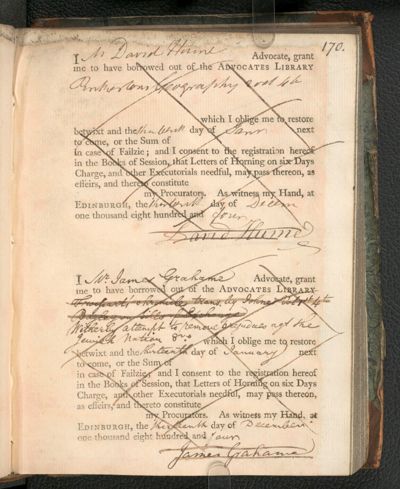 170.
I Mr David Hume Advocate, grant
me to have borrowed out of the ADVOCATES LIBRARY
Pinkertons Geography 2 vol 4to
which I oblige me to restore
betwixt and the thirteenth day of Janr next
to come, or the Sum of
in case of Failzie; and I consent to the registration hereof
in the Books of Session, that Letters of Horning on six Days
Charge, and other Executorials needful, may pass thereon, as
effeirs, and thereto constitute
my Procurators. As witness my Hand, at
EDINBURGH, the thirteenth day of Decem
one thousand eight hundred and four
David Hume
I Mr. James Grahame Advocate, grant
me to have borrowed out of the ADVOCATES LIBRARY
Chronicles trans. by Johnes 4to
Bills of Exchange
Witherby attempt to remove prejudices agt the
Jewish Nation 8vo which I oblige me to restore
betwixt and the thirteenth day of January next
to come, or the Sum of
in case of Failzie; and I consent to the registration hereof
in the Books of Session, that Letters of Horning on six Days
Charge, and other Executorials needful, may pass thereon,
as effeirs, and thereto constitute
my Procurators. As witness my Hand, at
EDINBURGH, the thirteenth day of December
one thousand eight hundred and four
James Grahame